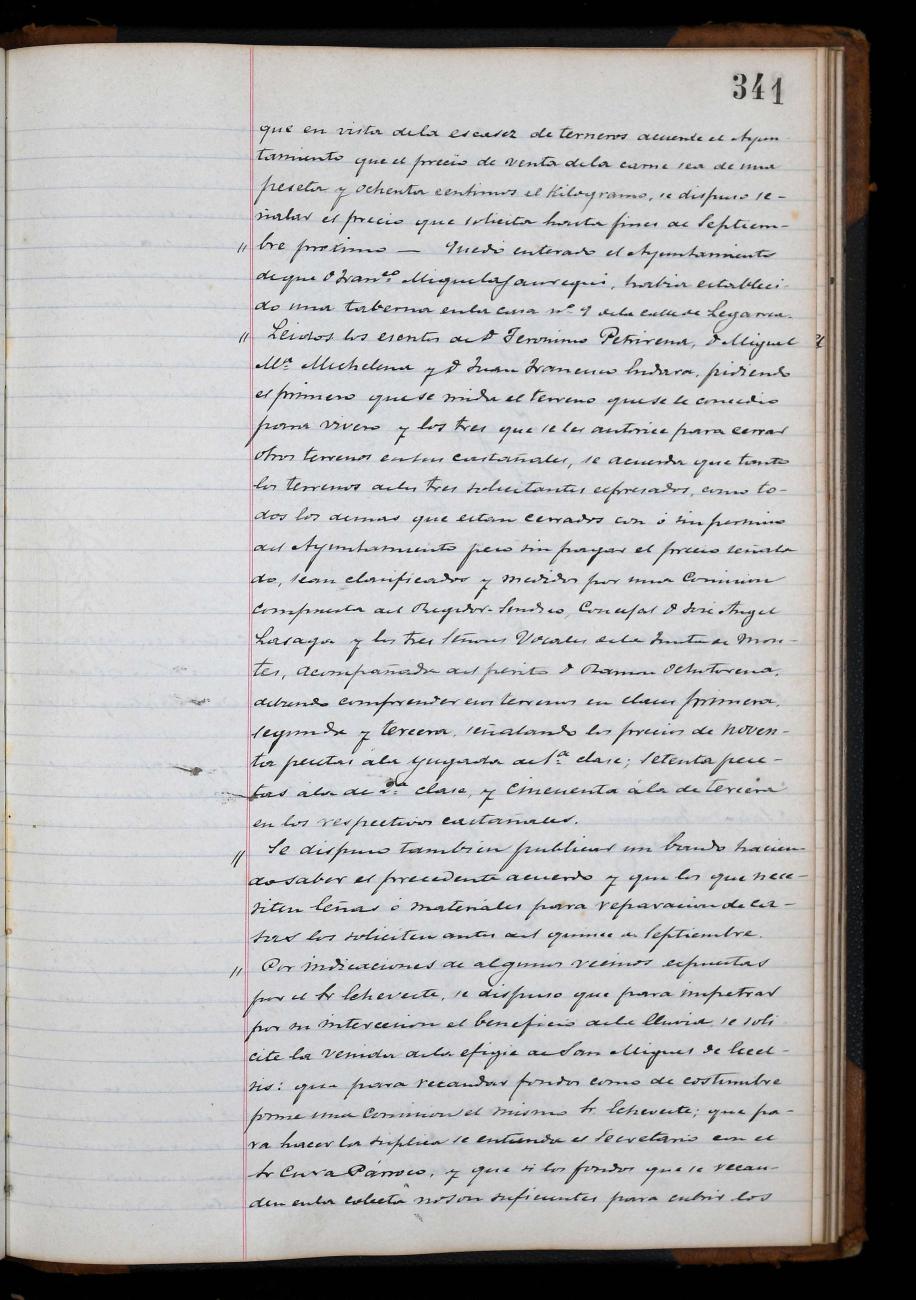 341
que en vista dela escasez de terneros acuerde el Ayun-
tamiento que el precio de venta dela carne sea de una
peseta y ochenta centimos el Kilogramo, se dispuso se-
ñalar el precio que solicita hasta fines de Septiem-
" bre proximo — Quedó enterado el Ayuntamiento
de que D Franco. Miquelajauregui, habia estableci-
do una taberna enla casa no. 9 dela calle de Legarra.
" Leidos los escritos de D Jeronimo Petrirena, D Miguel
Ma. Michelena y D Juan Francisco Indara, pidiendo
el primero que se mida el terreno que se le concedio
para vivero y los tres que se les autorice para cerrar
otros terrenos en sus castañales, se acuerda que tanto
los terrenos delos tres solicitantes espresados, como to-
dos los demas que estan cerrados con ó sin permiso
del Ayuntamiento pero sin pagar el precio señala
do, sean clasificados y medidos por una Comision
compuesta del Regidor-Sindico, Concejal D José Angel
Lasaga y los tres Señores Vocales dela Junta de Mon-
tes, acompañada del perito D Ramon Ochotorena,
debiendo comprender esos terrenos en clases primera,
segunda y tercera, señalando los precios de noven-
ta pesetas ála yugada de 1a. clase; Setenta pese-
tas ála de 2a. clase, y Cincuenta ála de tercera
en los respectivos castañales.
" Se dispuso tambien publicar un bando hacien-
do saber el precedente acuerdo y que los que nece-
siten leñas ó materiales para reparacion de ca-
sas los soliciten antes del quince de Septiembre.
" Por indicaciones de algunos vecinos espuestas
por el Sr Echeveste, se dispuso que para impetrar
por su intercesion el beneficio dela lluvia, se soli
cite la venida dela efigie de San Miguel de Excel-
sis: que para recaudar fondos como de costumbre
forme una Comision el mismo Sr. Echeveste; que pa-
ra hacer la suplica se entienda el Secretario con el
Sr Cura Párroco, y que si los fondos que se recau-
den enla colecta no son suficientes para cubrir los